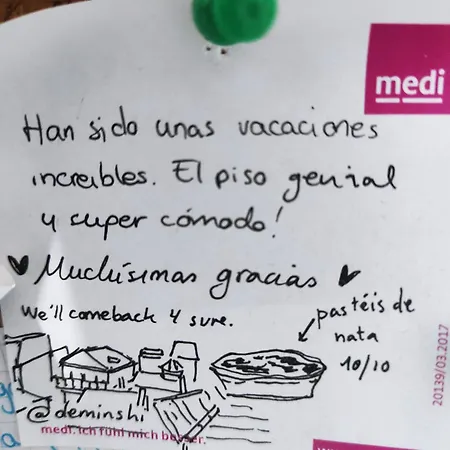 medi
Han sido unas vacaciones
increibles. El piso genial
y super cómodo!
♥ Muchísimas gracias ♥
We'll comeback 4 sure.
pastéis de
nata
10/10
@deminshi
medi. ich fühl mich besser.
20139/03.2017